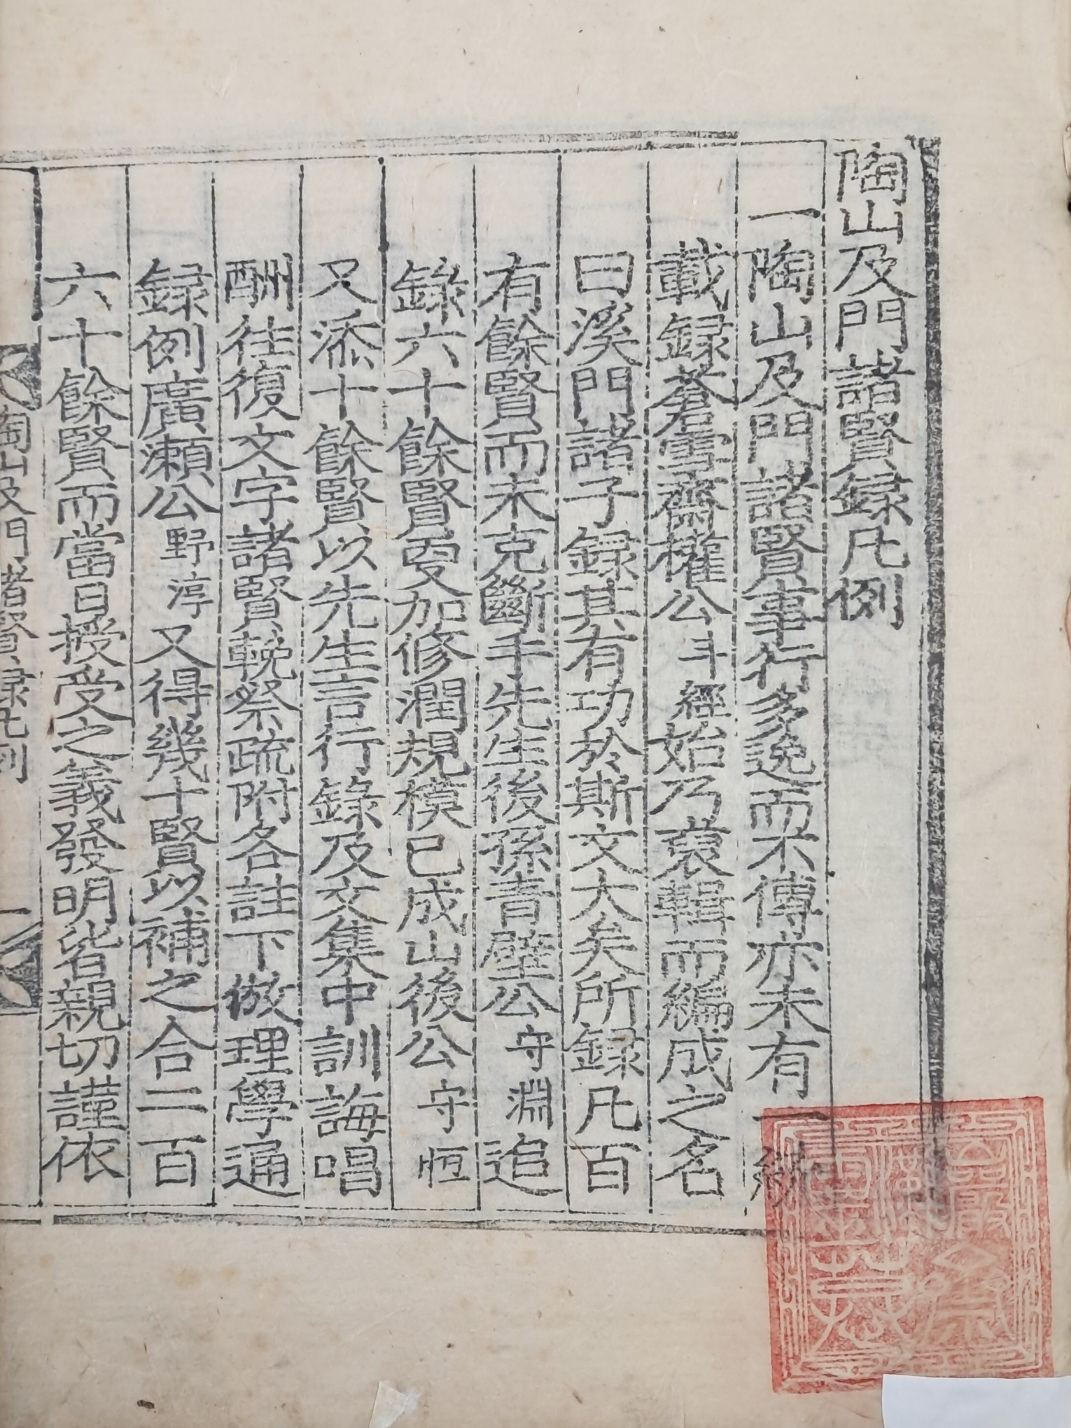 陶山及門諸賢録凡例
一陶山及門諸賢事行多逸而不傳亦未有一統
載録蒼雪齋權公斗經始乃裒輯而編成之名
曰溪門諸子録其有功於斯文大矣所録凡百
有餘賢而未克斷手先生後孫靑壁公守淵追
錄六十餘賢更加修潤規模已成山後公守恒
又添十餘賢以先生言行錄及文集中訓誨唱
酬往復文字諸賢輓祭疏附各註下倣理學通
録例廣瀨公野淳又得幾十賢以補之合二百
六十餘賢而當日授受之義發明皆親切謹依
陶山及門諸賢録凡例 一